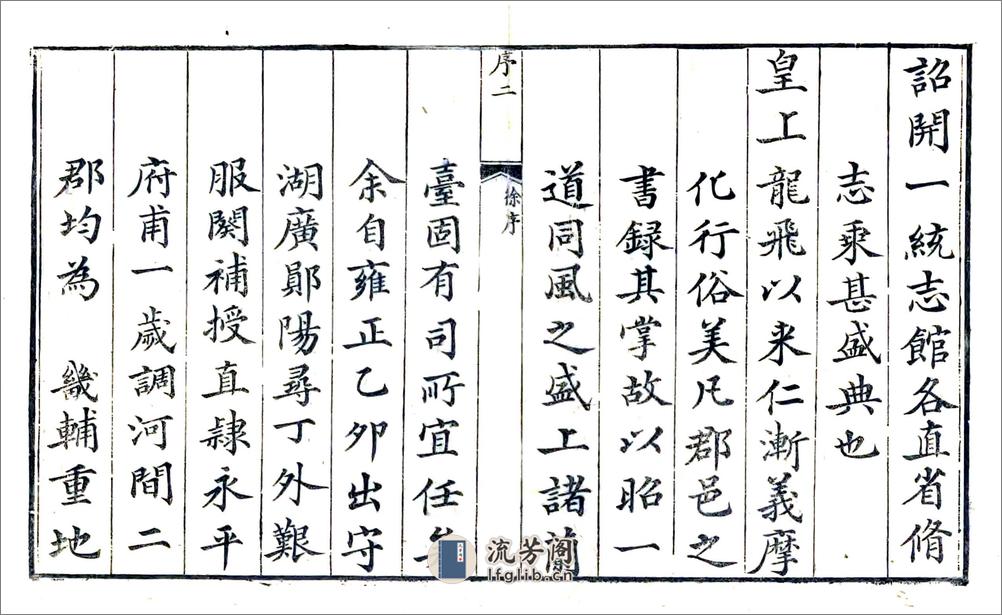 詔開一統志館各直省脩
志乘甚盛典也
皇上龍飛以来仁漸義摩
化行俗美凡郡邑之
書録其掌故以昭一
道同風之盛上諸蘭
序二
徐序
臺固有司所宜任
余自雍正乙卯出守
湖廣鄖陽尋丁外艱
服闋補授直隷永平
府甫一歲調河間二
郡均為 畿輔重地
流芳閣
lfglib.cn